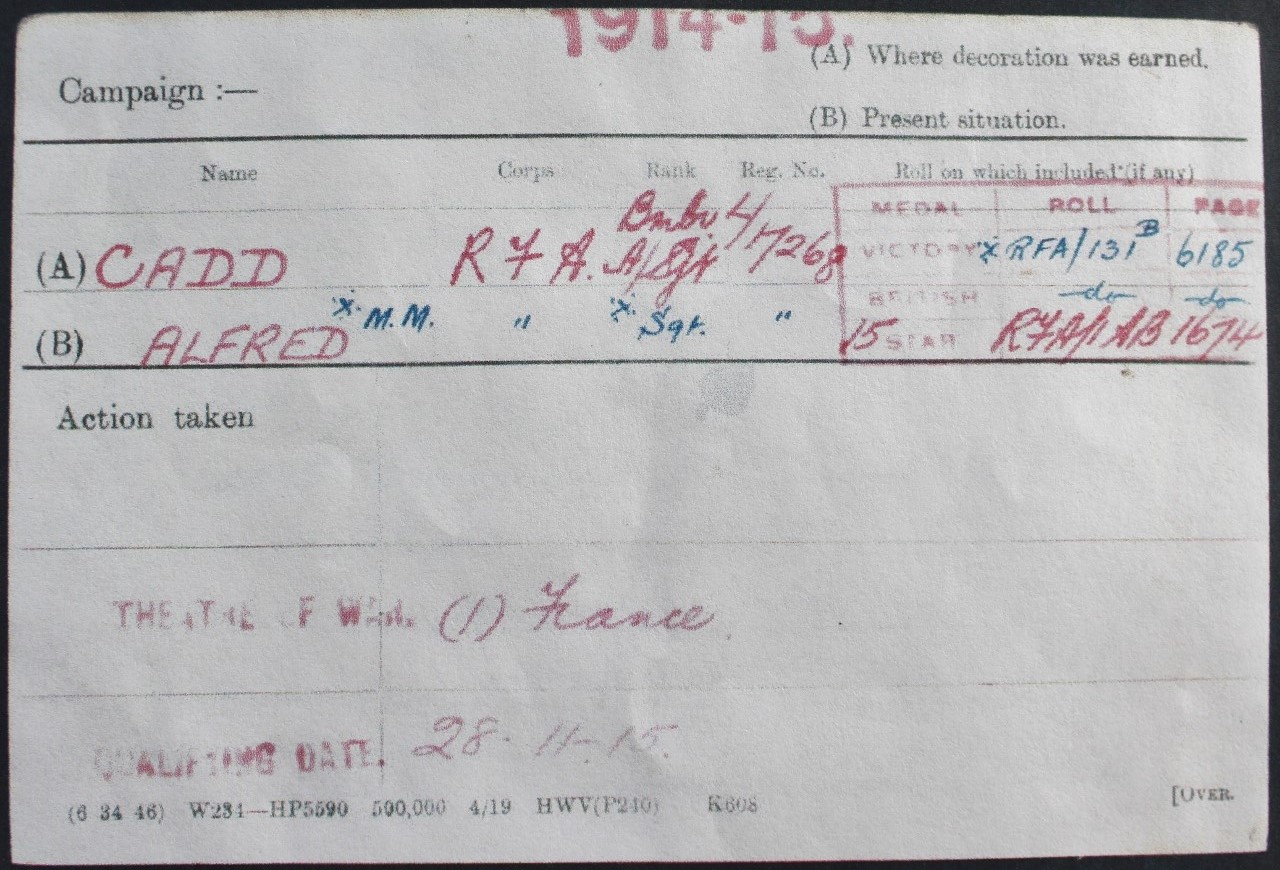 1914-15.
(A) Where decoration was earned.
Campaign :—
(B) Present situation.
Name Corps Rank Reg. No. Roll on which included (if any)
MEDAL ROLL PAGE
Bmbr 4/
(A) CADD R F A. A/Sjt 17268 VICTORY * RFA/131 B 6185
BRITISH -do- -do-
(B) ALFRED * M.M. " * Sgt. " 15 STAR RFA/1AB 1674
Action taken
THEATRE OF WAR. (1) France.
QUALIFYING DATE. 28-11-15.
(6 34 46) W234—HP5590 500,000 4/19 HWV(P240) K608
[OVER.